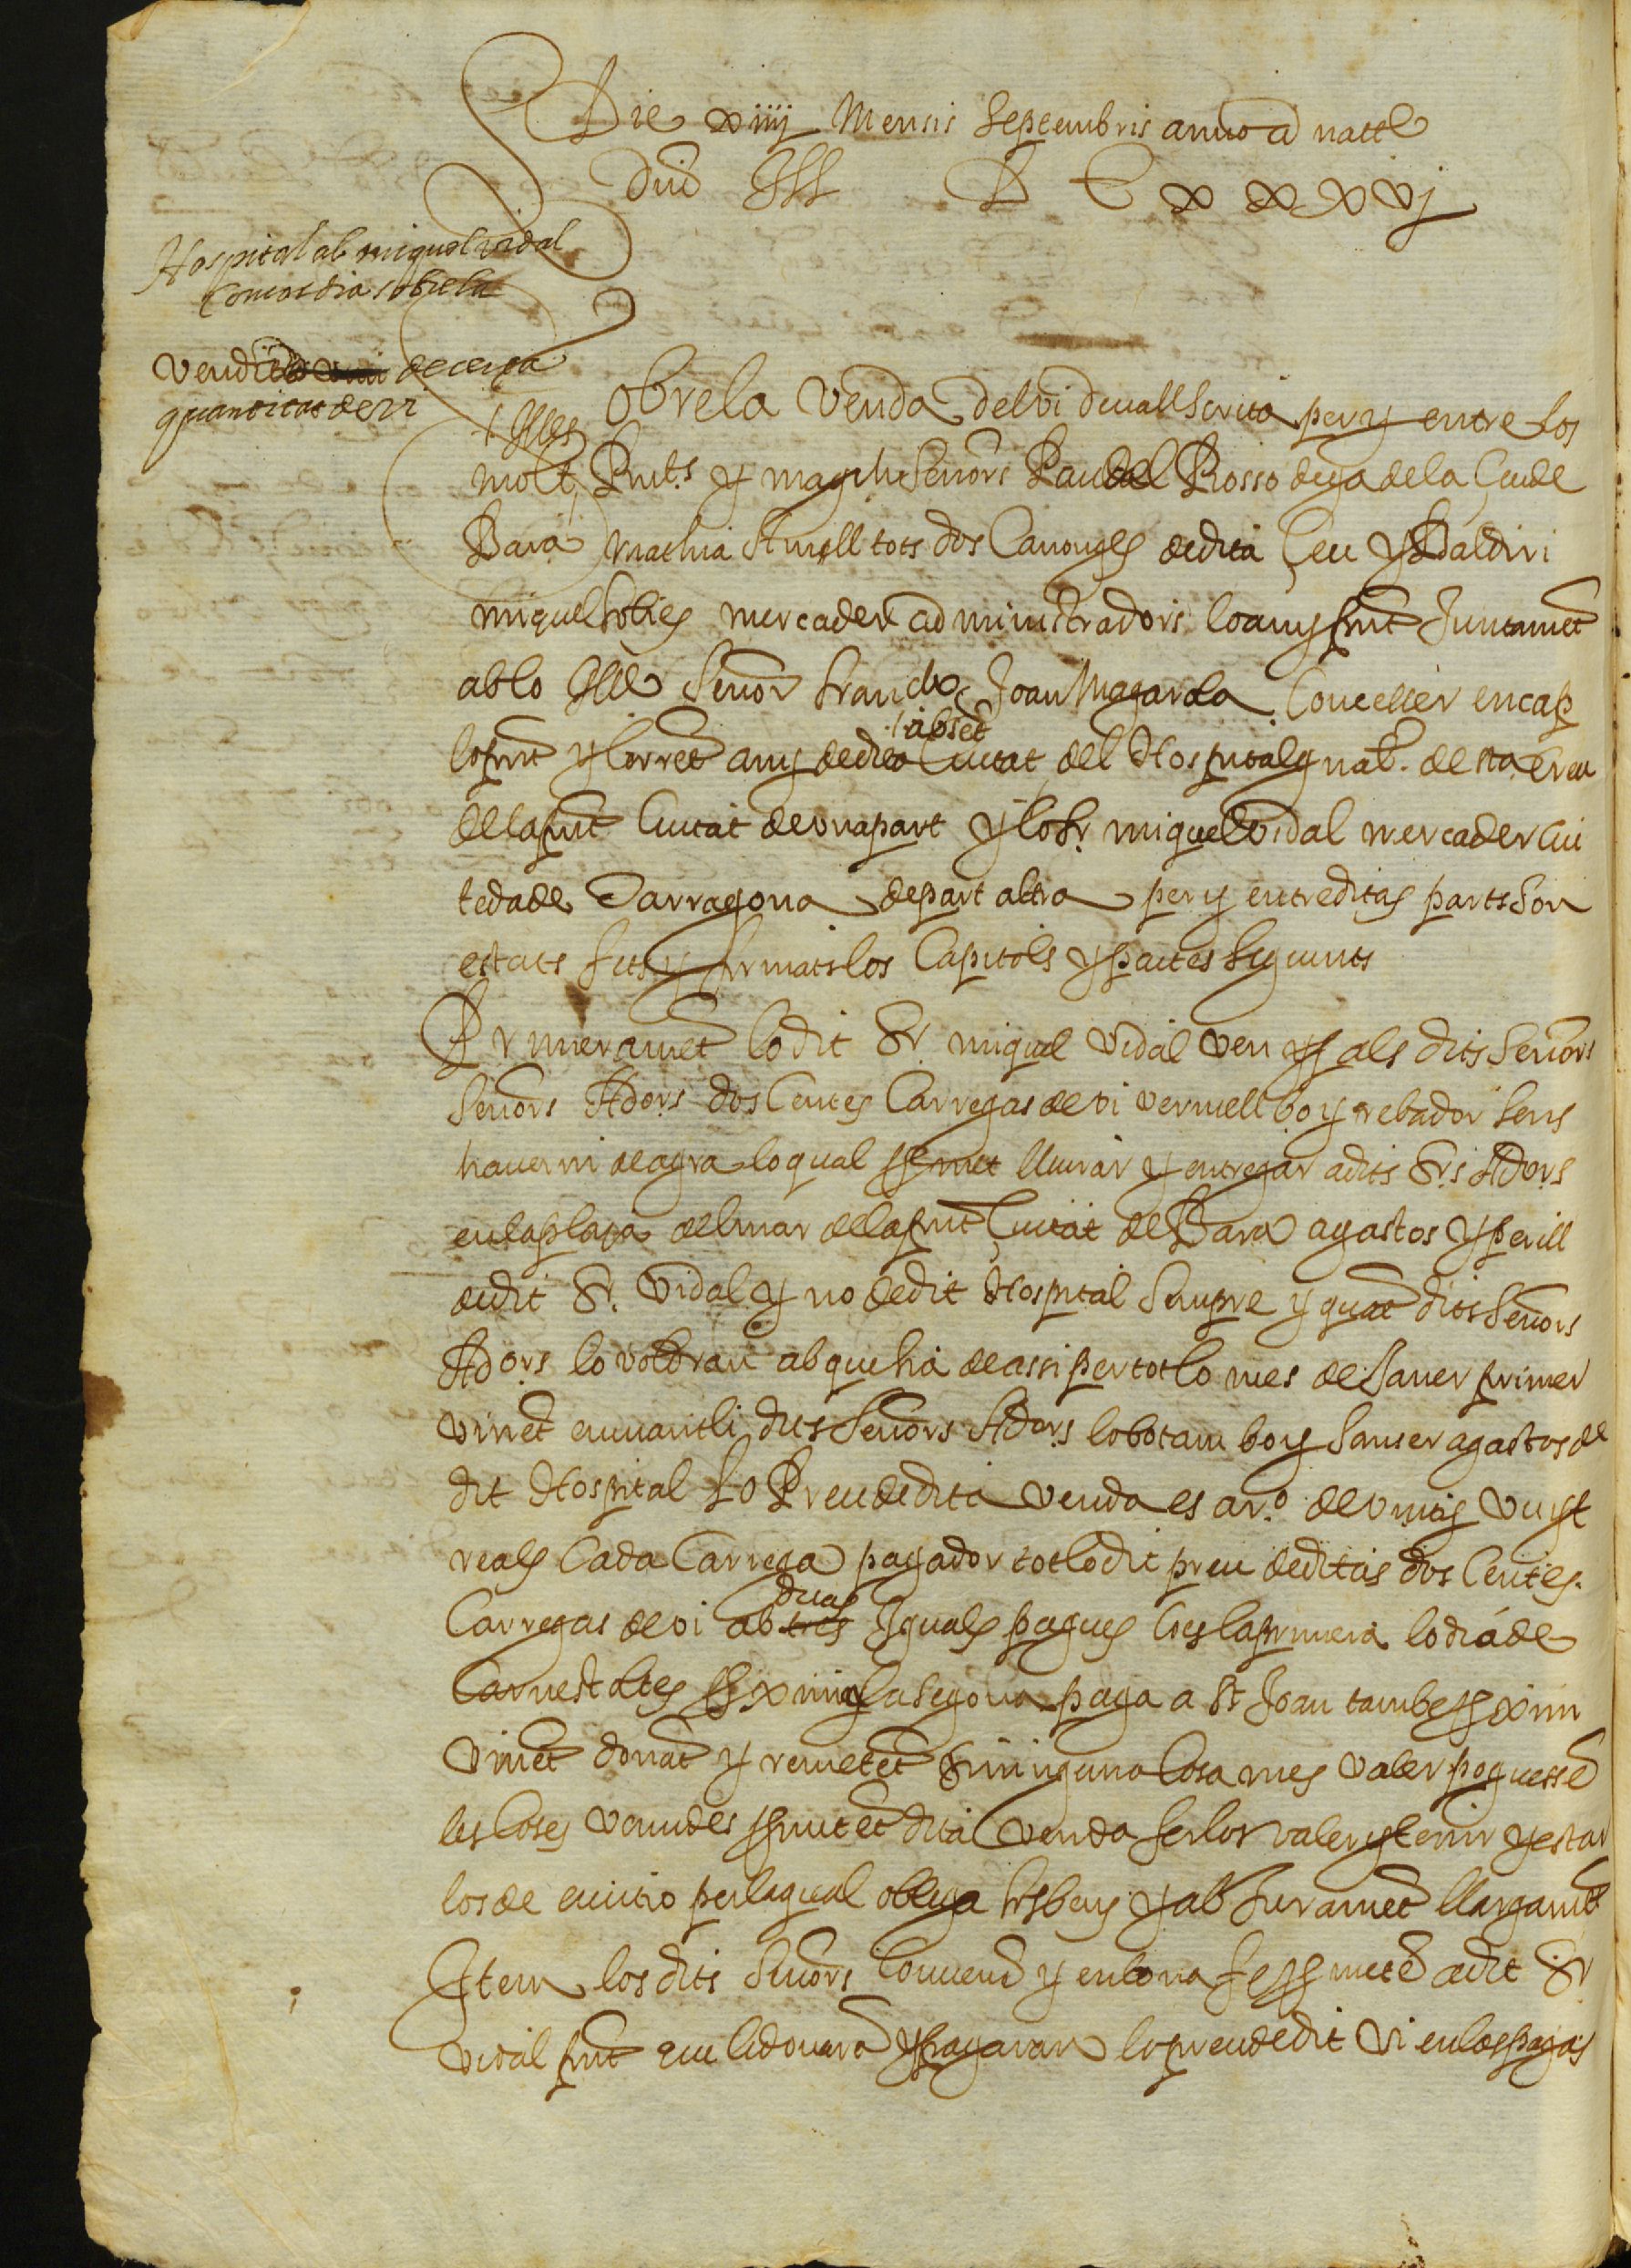 Die xiiij Mensis Septembris anno a natt
Dni M D C x x x vj
Hospital ab miquel vidal
Concordia sobre la
venda de certa
quantitat de vi
Sobre la venda del vi devall scrita per y entre los
Illes
molt Rnts y magch Senors Pau del Rosso dega de la Çeu de
Bara Mathia Amell tots dos Canonges de dita Çeu y Baldiri
miquel sobies mercader administradors lo any pnt Juntament
ab lo Ille Senor Franch Joan Magarola Conceller en cap
absét
lo pnt y corrét any de dita Ciutat del Hospital gnal de sta Creu
de la pnt Ciutat de una part y lo Sr miquel vidal mercader ciu
tedá de Tarragona de part altra per y entre ditas parts son
estats fets y firmats los Capitols y pactes seguents
Primeramét lo dit Sr. miquel vidal ven als dits Senors
Senors Adors dos Centes Carregas de vi vermell bo y rebador sens
haverni de agra lo qual promet lliurar y entregar a dits Srs Adors
en la plaja del mar de la pnt Ciutat de Bara a gastos y perill
de dit Sr. Vidal y no de dit Hospital sempre y quát dits Senors
Adors lo voldran ab que ha de assi per tot lo mes de Janer primer
vinét enviantli dits Senors Adors lo botam bo y sanser a gastos de
dit Hospital Lo Preu de dita venda es a ro. de vint y vuyt
reals Cada Carrega pagador tot lo dit preu de ditas dos Centes
duas
Carregas de vi ab tres Iguals pagues ço es la primera lo dia de
Carnestoltes proxim la segona paga a St Joan tambe proxim
vinét donát y remetét si ninguna cosa mes valer poguessé
les coses venudes prometét dita venda ferlos valer y tenir y estar
los de evictio per la qual obliga sos bens y ab Jurament llargamt
Item los dits Senors convené y en bona fe prometé a dit Sr
Vidal pnt que li donará y pagaran lo preu de dit vi en las pagas